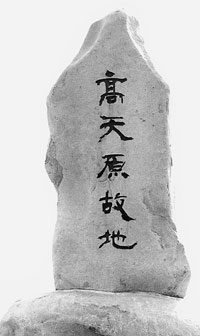 高天原故地